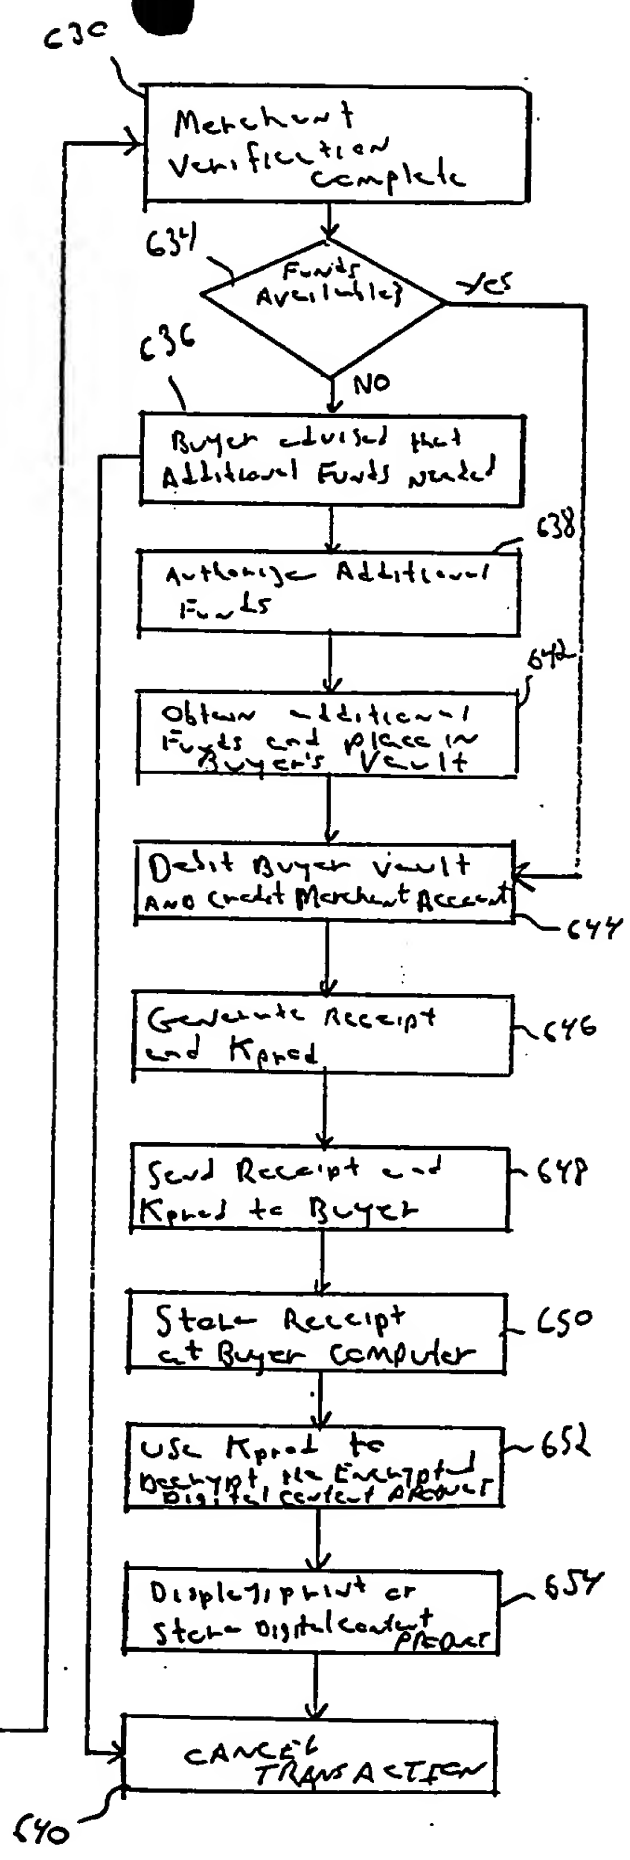 630
Merchant
Verification
Complete
634
Funds
Available?
Yes
636
NO
Buyer advised that
Additional Funds needed
638
Authorize Additional
Funds
642
Obtain additional
Funds and place in
Buyer's Vault
Debit Buyer Vault
AND Credit Merchant Account
644
Generate Receipt
and Kprod
646
Send Receipt and
Kprod to Buyer
648
Store Receipt
at Buyer Computer
650
Use Kprod to
Decrypt the Encrypted
Digital Content PRODUCT
652
Display, print or
Store Digital Content
PRODUCT
654
CANCEL
TRANSACTION
640